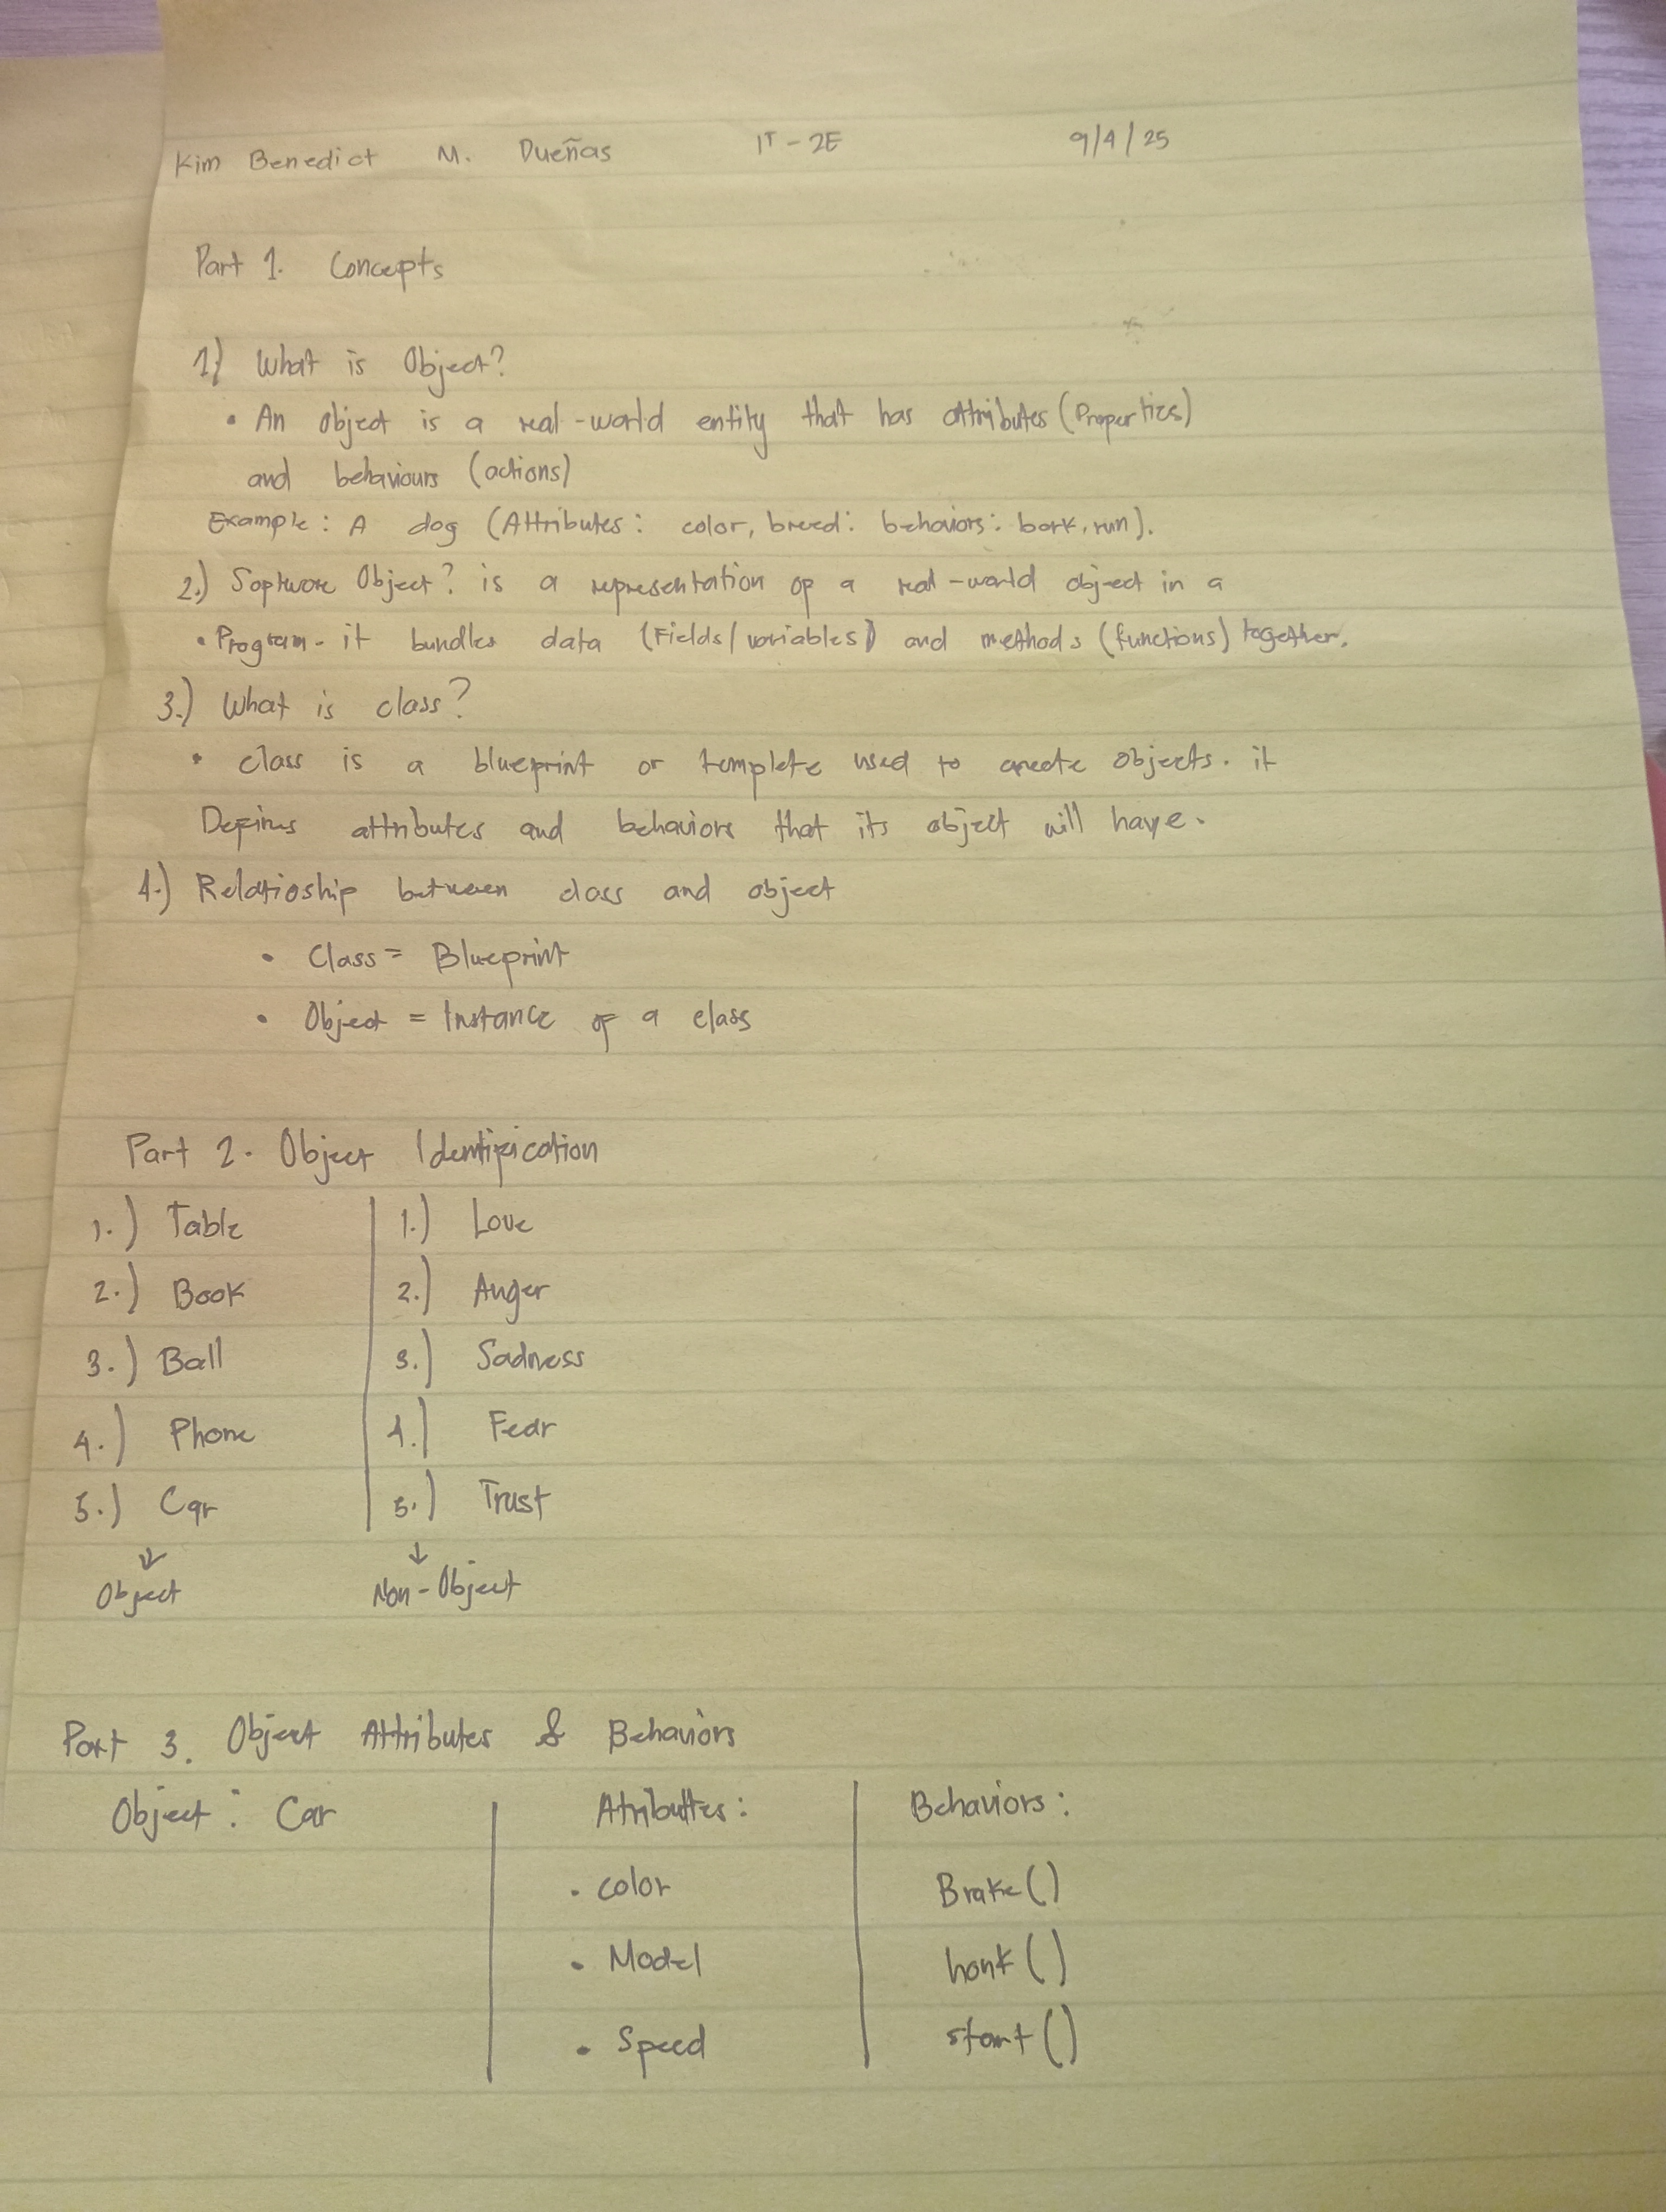 Kim Benedict M. Dueñas IT - 2E 9/4/25
Part 1. Concepts
1) What is Object?
• An object is a real-world entity that has attributes (Properties)
and behaviours (actions)
Example: A dog (Attributes: color, breed: behaviors: bark, run).
2.) Software Object? is a representation of a real-world object in a
• Program - it bundles data (Fields/variables) and methods (functions) together.
3.) What is class?
• class is a blueprint or template used to create objects. it
Defines attributes and behaviors that its object will have.
4.) Relatioship between class and object
• Class = Blueprint
• Object = Instance of a class
Part 2. Object Identification
1.) Table 1.) Love
2.) Book 2.) Anger
3.) Ball 3.) Sadness
4.) Phone 4.) Fear
5.) Car 5.) Trust
↓ ↓
Object Non-Object
Part 3. Object Attributes & Behaviors
Object: Car Atributtes: Behaviors:
• color Brake()
• Model honk()
• Speed start()